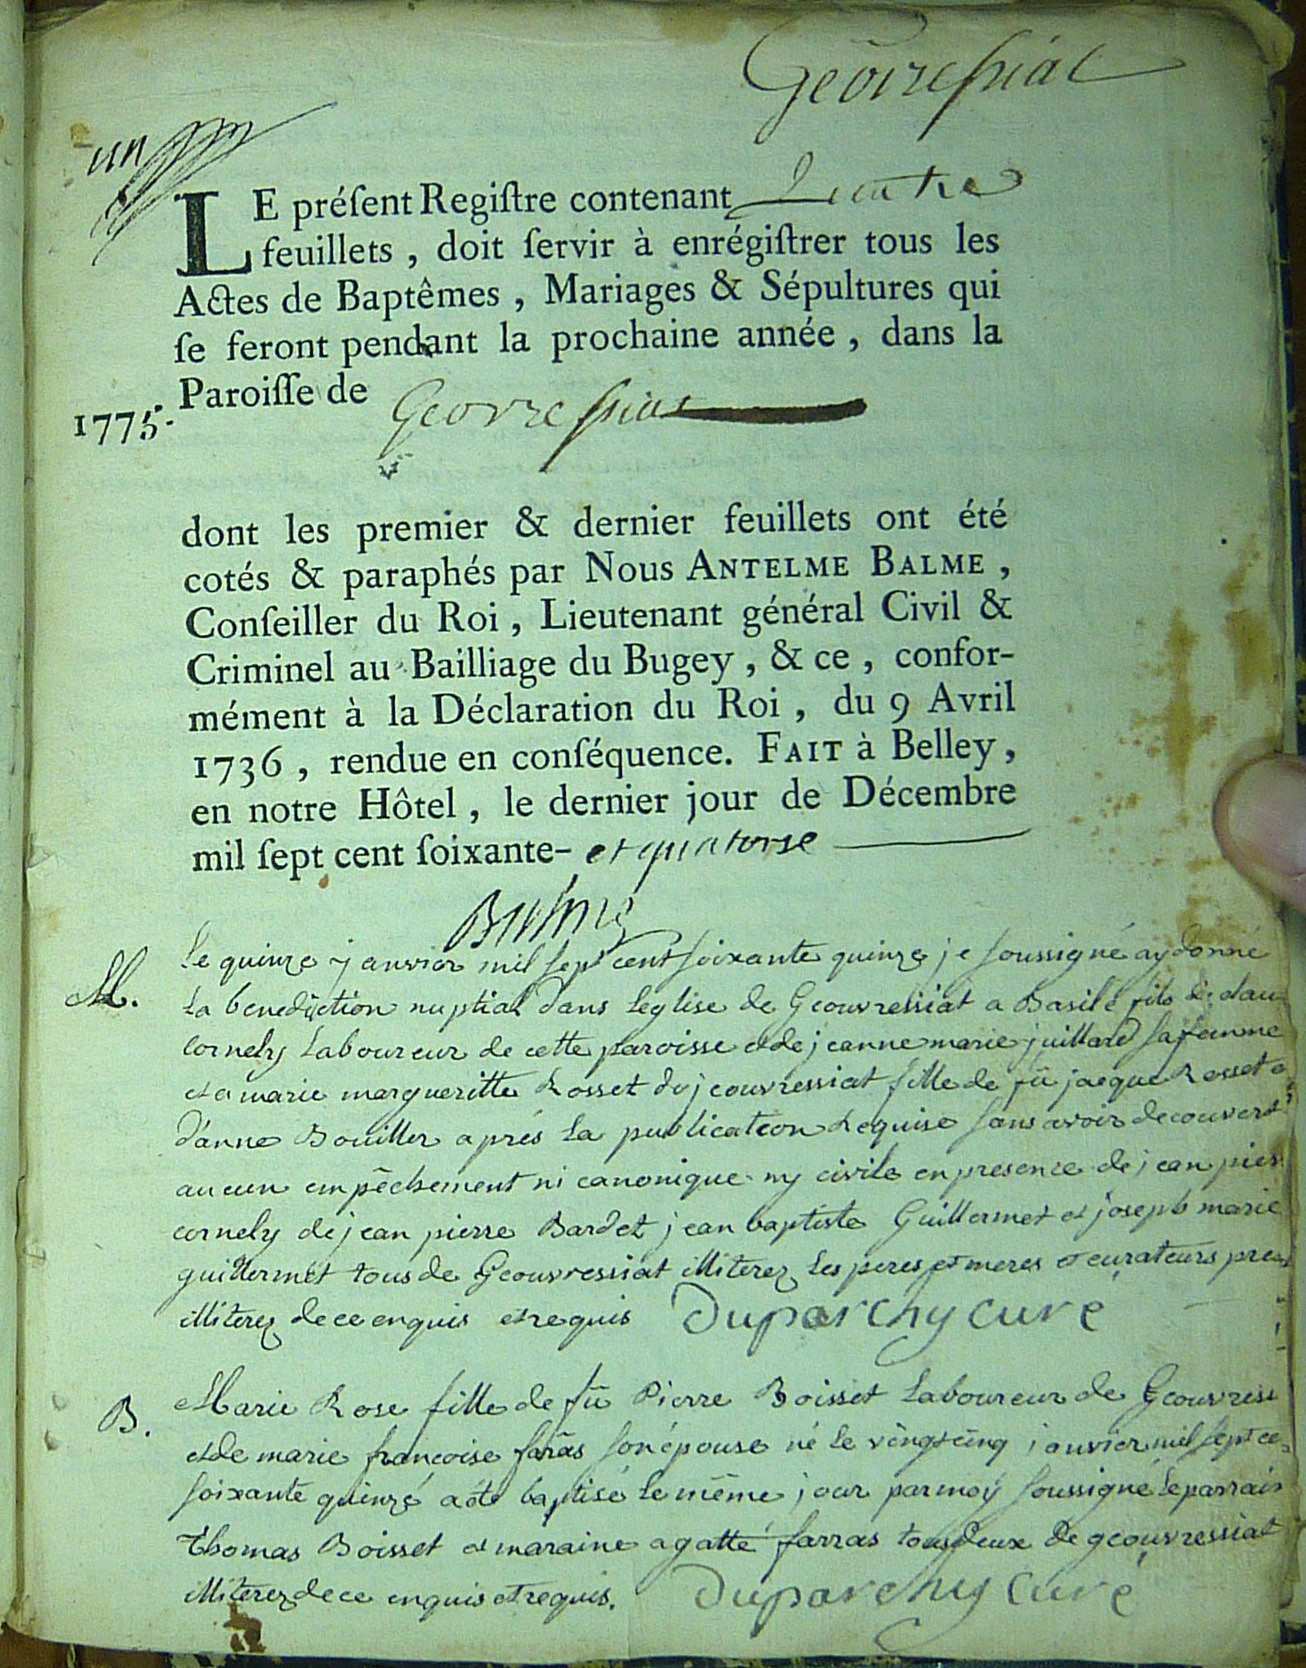 Geovressiat
un
LE préſent Regiſtre contenant quatre
feuillets, doit ſervir à enrégiſtrer tous les
Actes de Baptêmes, Mariages & Sépultures qui
ſe feront pendant la prochaine année, dans la
Paroiſſe de Geovressiat
1775.
dont les premier & dernier feuillets ont été
cotés & paraphés par Nous ANTELME BALME,
Conſeiller du Roi, Lieutenant général Civil &
Criminel au Bailliage du Bugey, & ce, confor-
mément à la Déclaration du Roi, du 9 Avril
1736, rendue en conſéquence. FAIT à Belley,
en notre Hôtel, le dernier jour de Décembre
mil ſept cent ſoixante- et quatorse
Balme
M.
Le quinze janvier mil sept cent soixante quinze je soussigné ay donné
la benediction nuptial dans leglise de Geouvressiat a Basile fils de clau
cornely Laboureur de cette paroisse et de jeanne marie juillard sa femme
et a marie margueritte Rosset de jeouvressiat fille de fû jacque Rosset e
d'anne Bouiller aprés la publication requise sans avoir decouvert
aucun empêchement ni canonique ny civile en presence de jean pier
cornely de jean pierre Bardet jean baptiste Guillermet et joseph marie
guillermet tous de Geouvressiat illiterez les peres et meres et curateurs
illiterez de ce enquis et requis Duparchy curé
B.
Marie Rose fille de fû Pierre Boisset Laboureur de Geouvress
et de marie françoise faras son épouse né le vingt cinq janvier mil sept ce
soixante quinze a été baptisé le même jour par moy soussigné le parrain
Thomas Boisset et maraine agatte farras tous deux de geouvressiat
illiterez de ce enquis et requis. Duparchy curé